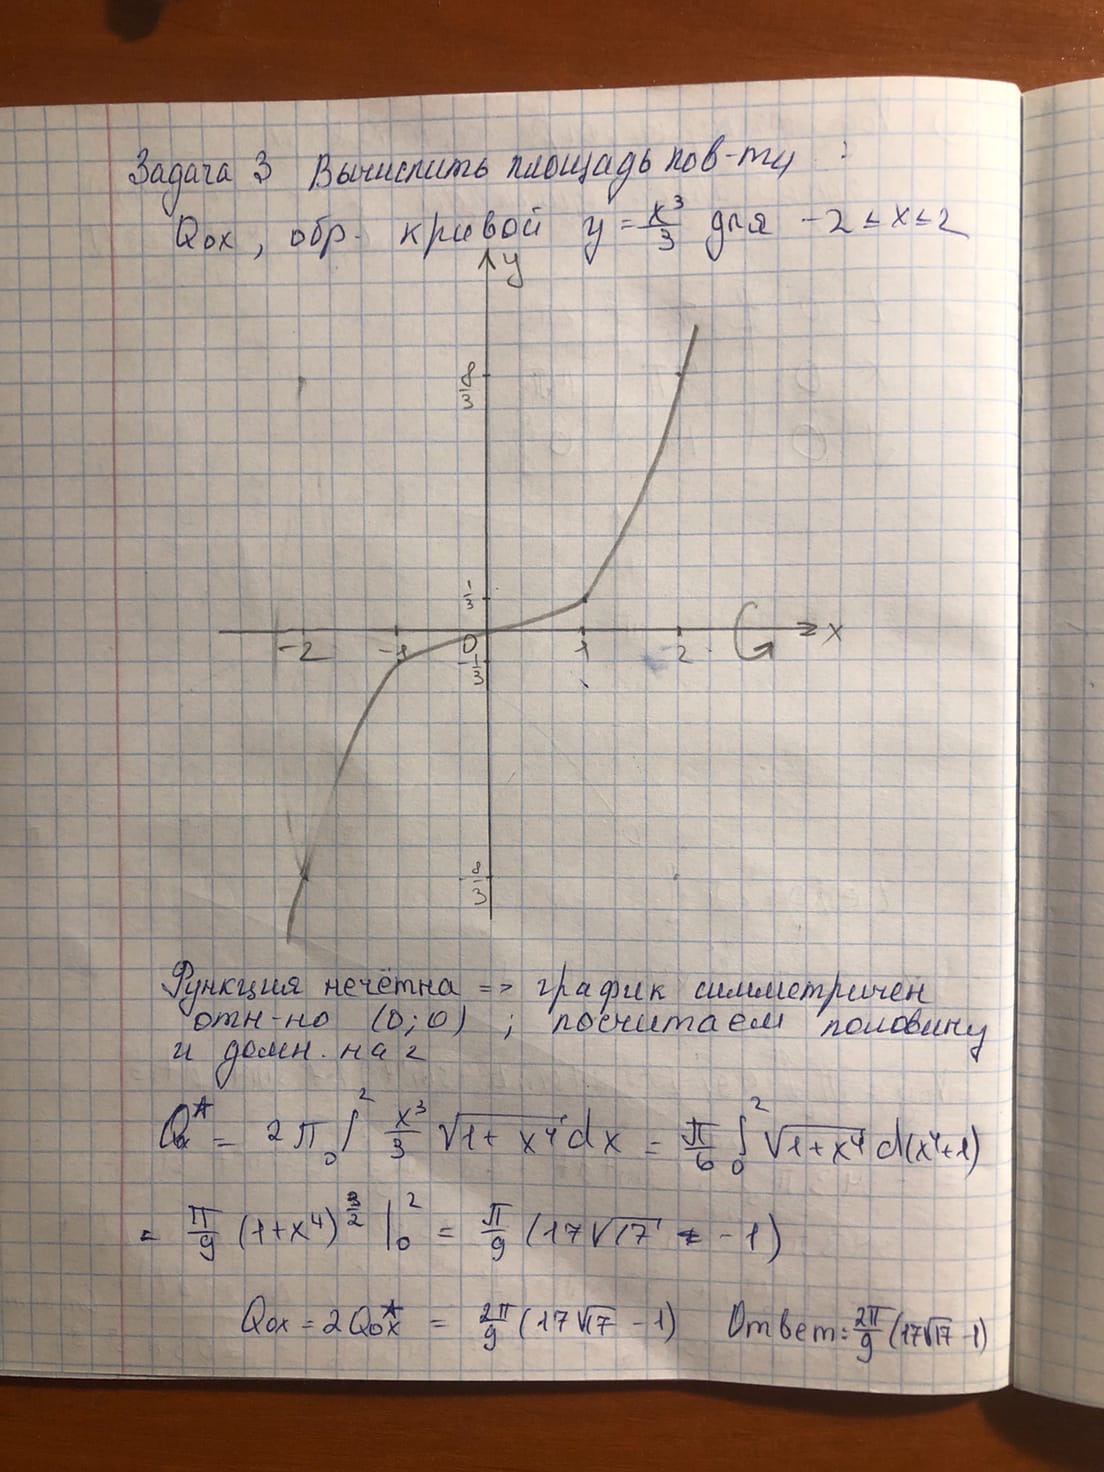 Задача 3 Вычислить площадь пов-ти :
Qox, обр. кривой y = x³/3 для -2 ≤ x ≤ 2
y
8/3
1/3
-2 -1 0 1 2 x
-1/3
-8/3
Функция нечётна => график симметричен
отн-но (0;0) ; посчитаем половину
и домн. на 2
Qox* = 2π ∫₀² x³/3 √(1+x⁴) dx = π/6 ∫₀² √(1+x⁴) d(x⁴+1)
= π/9 (1+x⁴)^(3/2) |₀² = π/9 (17√17 - 1)
Qox = 2Qox* = 2π/9 (17√17 - 1) Ответ: 2π/9 (17√17 - 1)